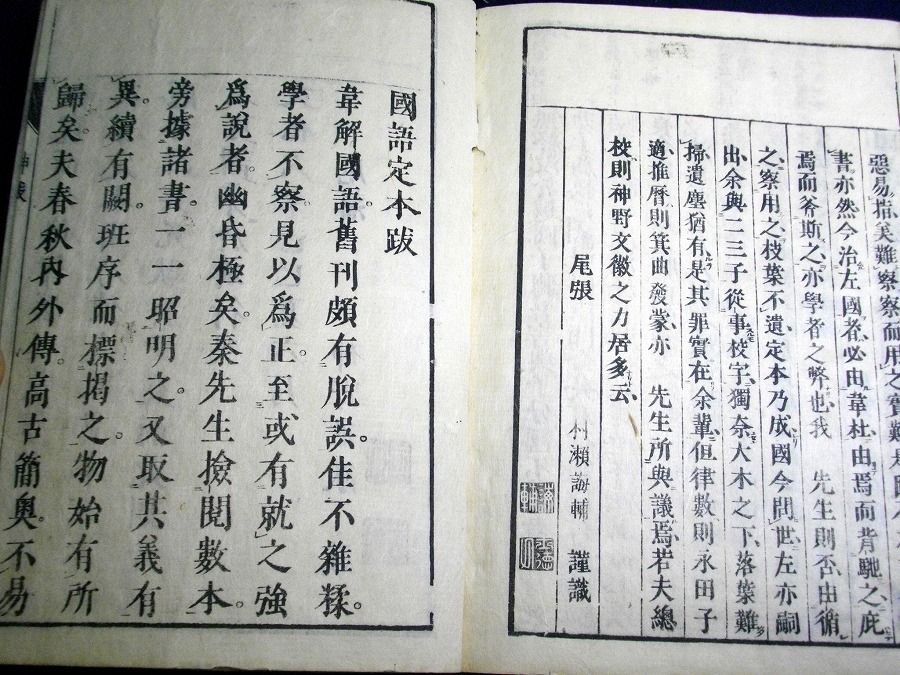 惡易指美難察察而用之實難
書亦然今治左國者必由韋杜由焉而背馳之庇
焉而斧斯之亦學者之弊也我 先生則否由循
之察用之枝葉不遺定本乃成國今問世左亦嗣
出余與二三子從事校字獨奈大木之下落葉難
掃遺塵猶有是其罪實在余輩但律數則永田子
適推曆則箕曲發蒙亦 先生所與議焉若夫總
校則神野文徽之力居多云
尾張 村瀨誨輔 謹識
國語定本跋
韋解國語舊刊頗有脫誤佳不雜糅
學者不察見以爲正至或有就之強
爲說者幽昏極矣秦先生撿閱數本
旁據諸書一一昭明之又取其義有
異續有闕班序而標揭之物始有所
歸矣夫春秋內外傳高古簡奧不易